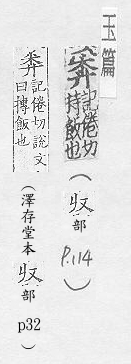 玉篇
𢍏記倦切
持飯也
（収部 P.114）
𢍏記倦切說文
曰摶飯也
（澤存堂本収部 p32）